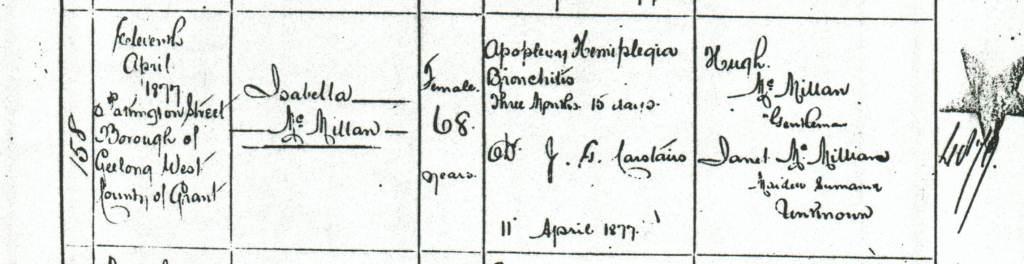 158
Eleventh
April
1877
Pakington Street
Borough of
Geelong West
County of Grant
Isabella
Mc Millan
Female
68
years
Apoplexy Hemiplegia
Bronchitis
Three Months 15 days
Dr J. G. Carstairs
11 April 1877
Hugh
Mc Millan
Gentleman
Janet Mc Millian
Maiden Surname
Unknown